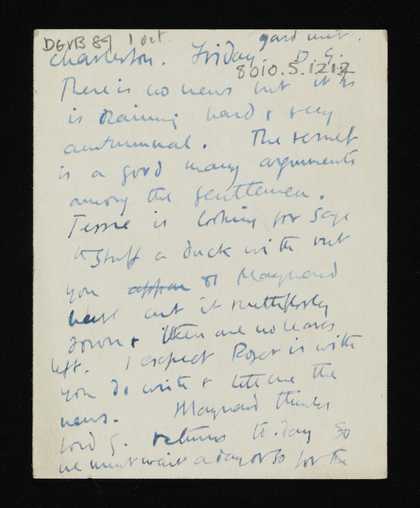 DG VB 89 1 Oct
Charleston. Friday D. G.
8010.5.1212
There is no news but it is
is raining hard & very
autumnal. The result
is a good many arguments
among the gentlemen.
Jessie is looking for sage
to stuff a duck with but
you appear or Maynard
have cut it ruthlessly
down & there are no leaves
left. I expect Roger is with
you do write & tell me the
news. Maynard thinks
Lord G. returns to-day so
we must wait a day or so for the